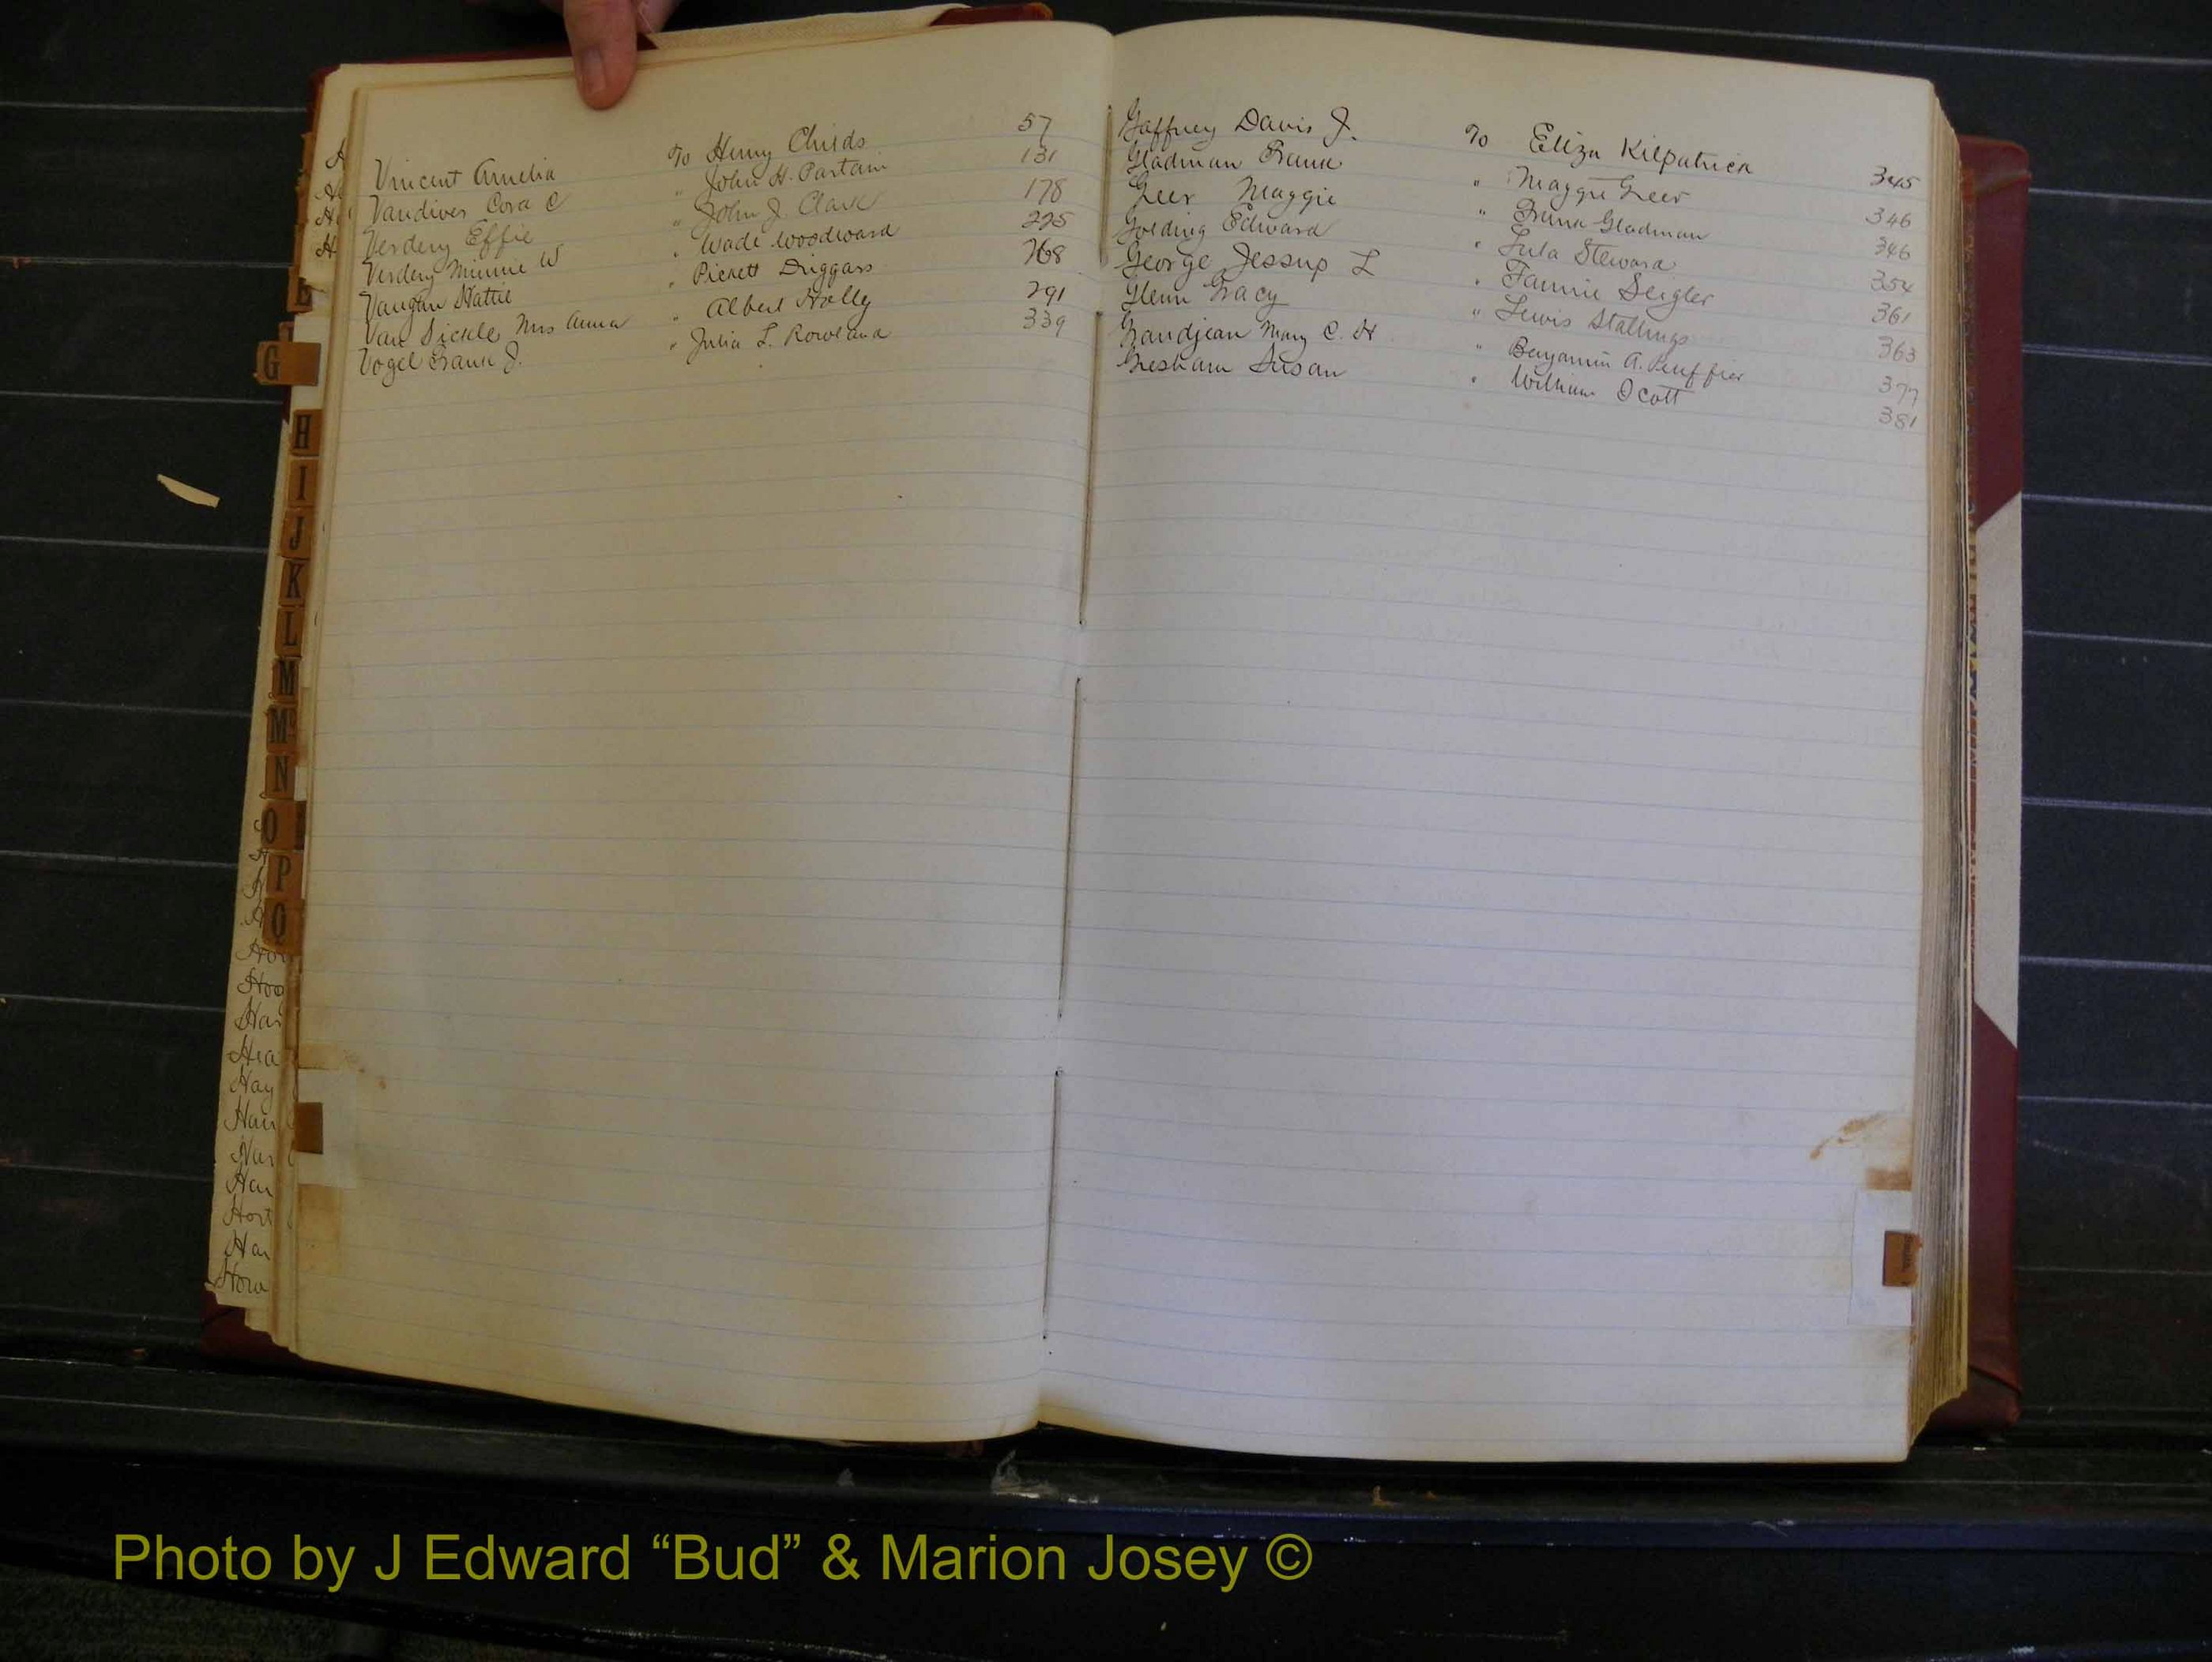 Vincent Amelia To Henry Childs 57
Vandiver Cora C " John H. Partain 131
Verdery Effie " John J. Clark 178
Verdery Minnie W " Wade Woodward 225
Vaughn Hattie " Pickett Driggars 268
Van Sickle, Mrs Anna " Albert Holly 291
Vogel Frank J. " Julia L. Rowland 339
Gaffney Davis J. To Eliza Kilpatrick 345
Gladman Frank " Maggie Greer 346
Greer Maggie " Frank Gladman 346
Golding Edward " Lula Steward 354
George Jessup L " Fannie Seigler 361
Glenn Gracy " Lewis Stallings 363
Grandjean Mary C. H " Benjamin A. 377
Gresham Susan " William Scott 381
E
G
H
I
J
K
L
M
Mc
N
O
P
Q
Hoo
Har
Hea
Hay
Har
Hart
Har
How
Photo by J Edward “Bud” & Marion Josey ©